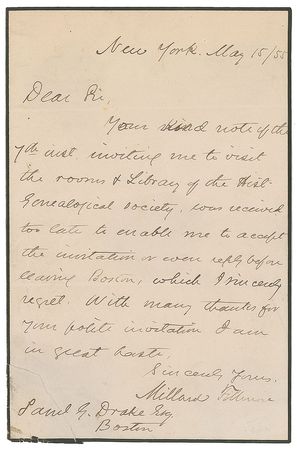 New York. May 15/55
Dear Sir,
Your kind note of the
7th inst. inviting me to visit
the rooms & Library of the Hist-
Genealogical society, was received
too late to enable me to accept
the invitation or even reply before
leaving Boston, which I sincerely
regret. With many thanks for
your polite invitation I am
in great haste,
Sincerely Yours,
Millard Fillmore
Saml G. Drake Esq
Boston